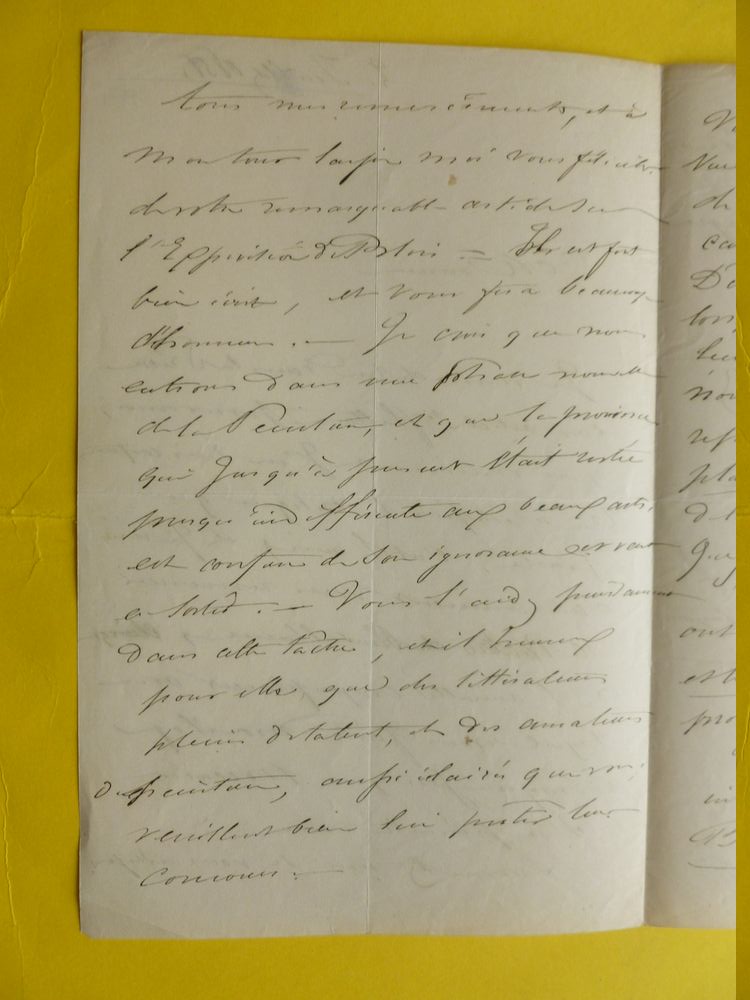 tous mes remerciements, et à
mon tour laissez moi vous féliciter
de votre remarquable article sur
l'Exposition de Blois — Il est fort
bien écrit, et vous fera beaucoup
d'honneur. — Je crois que nous
entrons dans une phase nouvelle
de la Peinture, et que la province
qui jusqu'à présent était restée
presqu'indifférente aux beaux arts,
est confuse de son ignorance
et
Sortir. — Vous l'aidez puissamment
dans cette tâche, et il heureux
pour elle que des littérateurs
pleins de talent, et des amateurs
de peinture, aussi éclairés que vous
veuillent bien lui prêter leur
concours. —